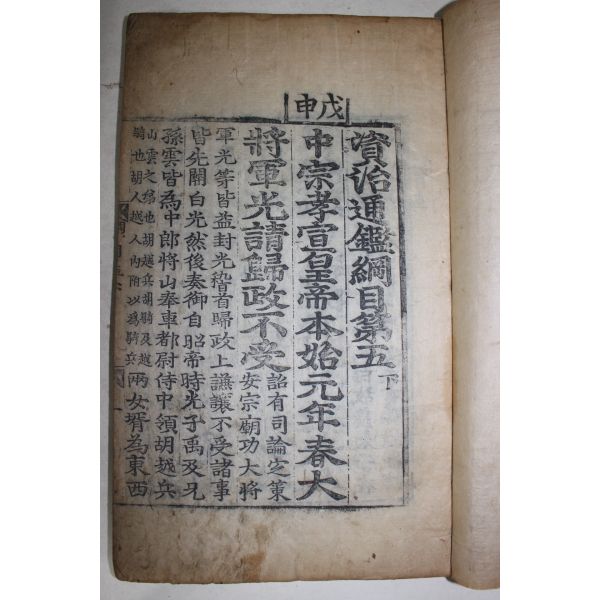 申戊
資治通鑑綱目第五下
中宗孝宣皇帝本始元年春大
將軍光請歸政不受
詔有司論定策
安宗廟功大將
軍光等皆益封光稽首歸政上謙讓不受諸事
皆先關白光然後奏御自昭帝時光子禹及兄
孫雲皆為中郎將山奉車都尉侍中領胡越兵
山雲之弟也胡越兵胡騎及越
騎也胡人越人內附以為騎兵
兩女壻為東西